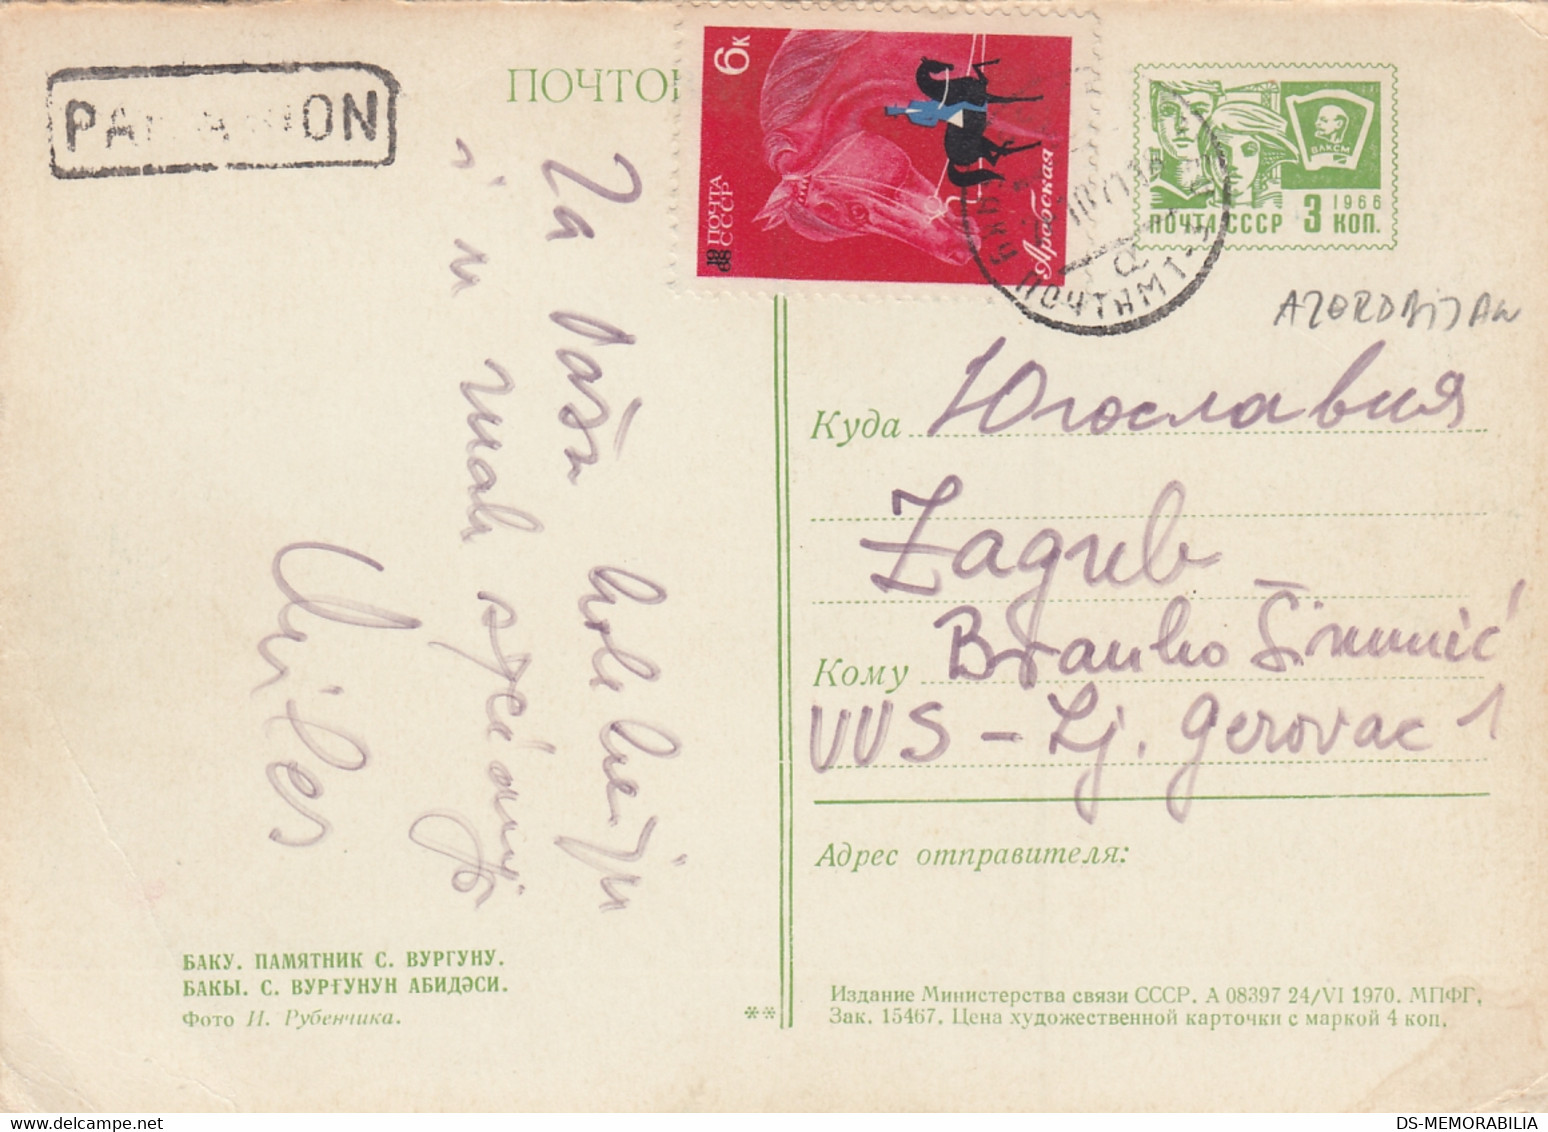 PAR AVION
ПОЧТО
6к
ПОЧТА
СССР
1968
Арабская
ПОЧТАМТ
ВЛКСМ
1966
ПОЧТА СССР 3 КОП.
AZERBAIJAN
Za Vašu
kolekciju
i mali
Куда Югославия
Zagreb
Кому Branko Šimunić
VVS - Lj. Gerovac 1
Адрес отправителя:
БАКУ. ПАМЯТНИК С. ВУРГУНУ.
БАКЫ. С. ВУРҒУНУН АБИДӘСИ.
Фото И. Рубенчика.
**
Издание Министерства связи СССР. А 08397 24/VI 1970. МПФГ,
Зак. 15467. Цена художественной карточки с маркой 4 коп.
DS-MEMORABILIA